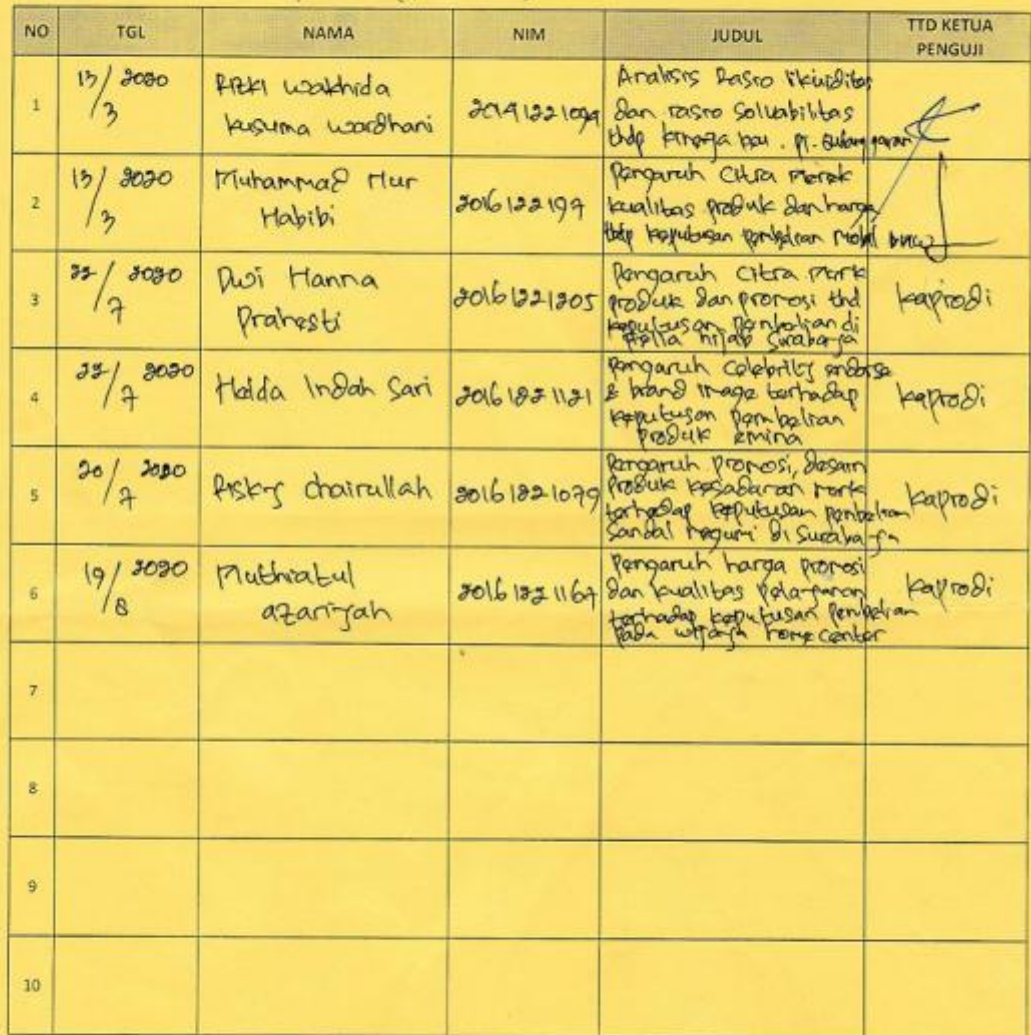 NO TGL NAMA NIM JUDUL TTD KETUA PENGUJI
1 13/3 2020 Rizki Wakhida Kusuma Wardhani
Analisis Rasio likuiditas
dan rasio Solvabilitas
thdp kinerja keu. PT.
2 13/3 2020 Muhammad Nur Habibi 2016122197
Pengaruh Citra Merek
kualitas produk dan harga
thdp keputusan pembelian mobil
3 22/7 2020 Dwi Hanna Prahesti 20161221205
Pengaruh citra merk
produk dan promosi thd
keputusan pembelian di
hijab Surabaya
kaprodi
4 22/7 2020 Helda Indah Sari 20161221121
Pengaruh Celebrity endorse
& brand image terhadap
keputusan pembelian
produk emina
kaprodi
5 20/7 2020 Risky chairullah 20161221079
Pengaruh promosi, desain
produk kesadaran merk
terhadap keputusan pembelian
Sandal di Surabaya
kaprodi
6 19/8 2020 Muthiatul azariyah 20161221167
Pengaruh harga promosi
dan kualitas pelayanan
terhadap keputusan pembelian
pada wijaya home center
kaprodi
7
8
9
10